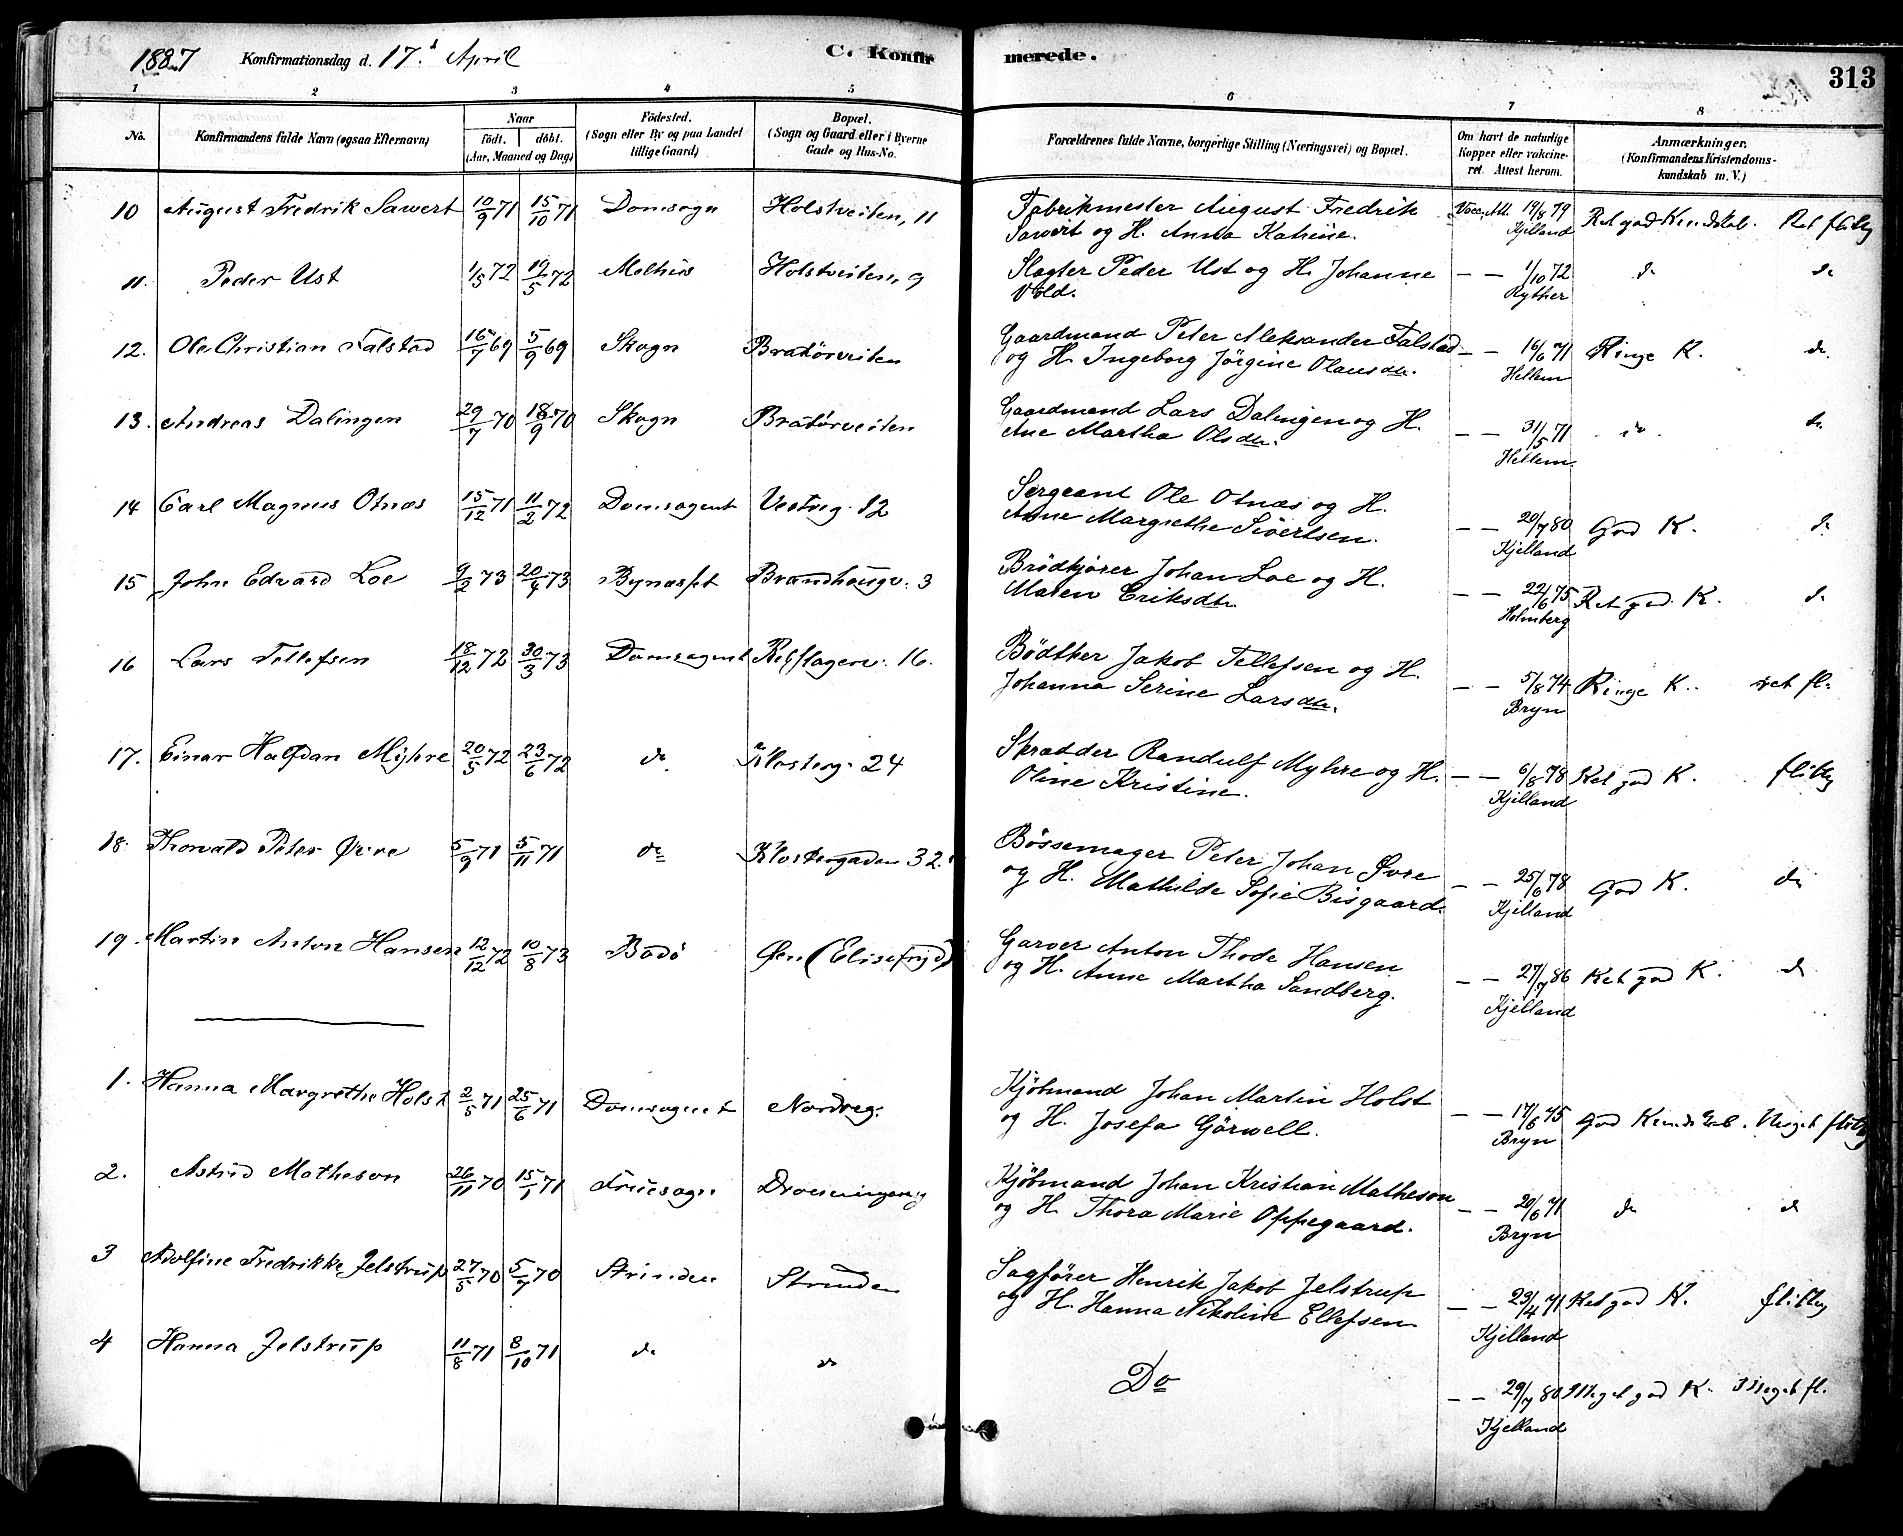 1887 Konfirmationsdag d. 17. April C. Konfirmerede. 313
1 2 3 4 5 6 7 8
No. Konfirmandens fulde Navn (egsaa Efternavn) Naar født. døbt. (Aar, Maaned og Dag) Fødested. (Sogn eller By og paa Landet tillige Gaard) Bopæl. (Sogn og Gaard eller i Byerne Gade og Hus-No. Forældrenes fulde Navne, borgerlige Stilling (Næringsvei) og Bopæl. Om havt de naturlige Kopper eller vakcineret. Attest herom. Anmærkninger. (Konfirmandens Kristendomskundskab m. V.)
10 August Fredrik Sawert 10/9 71 15/10 71 Domsogn Holstveiten, 11 Fabrikmester August Fredrik Vacc. Att. 19/8 79 Ret god Kundskab. Ret flittig
Sawert og H. Anna Katrine. Kjelland
11. Peder Ust 1/5 72 19/5 72 Melhus Holstveiten, 9 Slagter Peder Ust og H. Johanne — — 1/10 72 do do
Vold. Ryther
12. Ole Christian Falstad 16/7 69 5/9 69 Skogn Bratørveiten Gaardmand Peter Aleksander Falstad — — 16/6 71 Ringe K. do.
og H. Ingeborg Jørgine Olausdtr. Hellem
13. Andreas Dalingen 29/7 70 18/9 70 Skogn Bratørveiten Gaardmand Lars Dalingen og H. — — 31/5 71 do. do
Ane Martha Olsdtr. Hellem.
14 Carl Magnus Otnæs 15/12 71 11/2 72 Domsognet Vestreg. 12 Sergeant Ole Otnæs og H. — — 20/7 80 God K. do
Anne Margrethe Sivertsen. Kjelland
15 John Edvard Loe 9/2 73 20/4 73 Bynæsset Brandhaugv. 3 Brødkjører Johan Loe og H. — — 22/6 75 Ret god K. do
Maren Eriksdtr. Holmberg
16 Lars Tellefsen 18/12 72 30/3 73 Domsognet Rebslagerv. 16. Bødtker Jakob Tellefsen og H. — — 5/8 74 Ringe K. ret fl.
Johanna Serine Larsdtr. Bryn
17. Einar Halfdan Myhre 20/5 72 23/6 72 do. Klosterg. 24 Skrædder Randulf Myhre og H. — — 6/8 78 Ret god K. flittig
Oline Kristine. Kjelland
18. Thorvald Peter Øvre 5/9 71 5/11 71 do Klostergaden 32. Bøssemager Peter Johan Øvre — — 25/6 78 God K. do
og H. Mathilde Sofie Bisgaard. Kjelland
19. Martin Anton Hansen 12/12 72 10/8 73 Bodø Øen (Elisefryd) Garver Anton Thode Hansen — — 27/7 86 Ret god K. do
og H. Anne Martha Sandberg. Kjelland
1. Hanna Margrethe Holst 2/5 71 25/6 71 Domsognet Nordreg. Kjøbmand Johan Martin Holst — — 17/6 75 God Kundskab. Meget flittig
og H. Josefa Gørwell. Bryn
2. Astrid Matheson 26/11 70 15/1 71 Fruesogn Dronningensg Kjøbmand Johan Kristian Matheson — — 20/6 71 do do
og H. Thora Marie Oppegaard. Bryn
3 Adolfine Fredrikke Jelstrup 27/5 70 5/7 70 Strinden Strinden Sagfører Henrik Jakob Jelstrup — — 23/4 71 Ret god K. flittig
og H. Hanna Nikoline Ellefsen Kjelland
4 Hanna Jelstrup 11/8 71 8/10 71 do do Do — — 29/7 80 Meget god K. Meget fl.
Kjelland